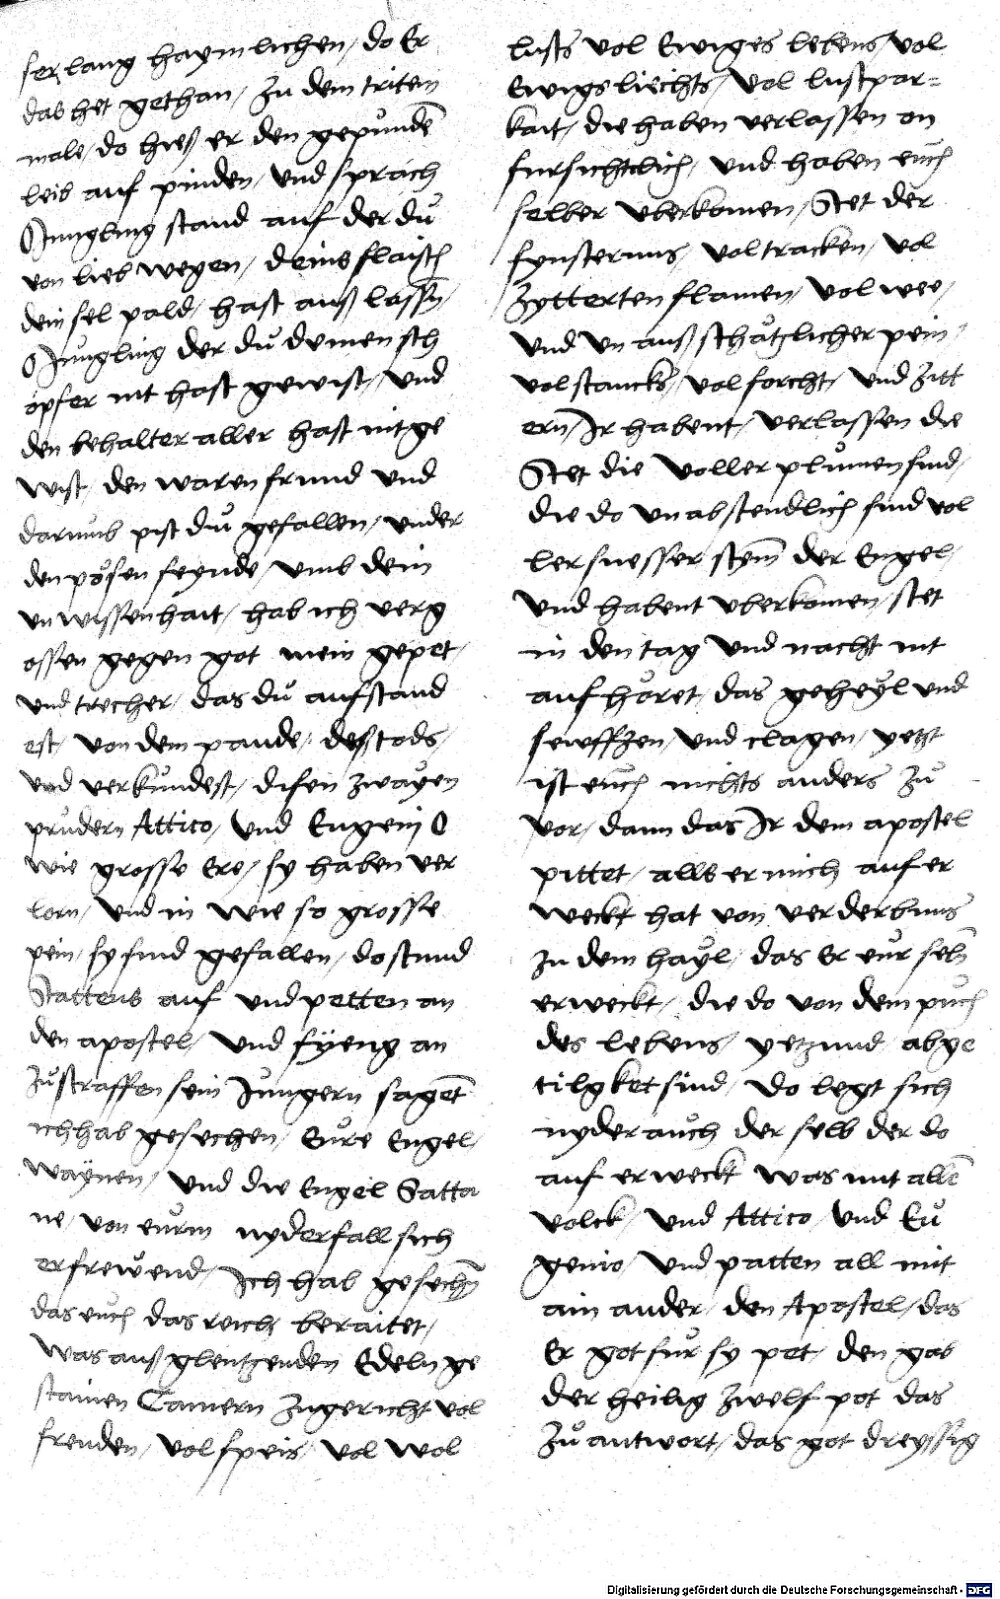 ser lang haymlichen, do Er
das het gethan, zu dem triten
male, do hies er den gepunden̄
leib auf pinden, Vnd sprach
O Jungling stand auf der du
von lieb wegen, deins flaisch
dein sel pald, hast auß lassn̄,
O Jungling der du du menschn
opfer nit hast gewist, Vnd
den behalter aller hast nit ge
wist, den waren frund Vnd
darumb pist du gefallen, vnder
den pösen feynde, vmb dein
vnwissenhait, hab ich verg
ossen gegen got mein gepet,
vnd trecher, das du aufstand
est, von dem pande, deß tods,
vnd verkundest, disen zwayen
prudern Attico, Vnd Eugenij O
wie grosse Ere, sy haben ver
lorn, Vnd in wie so grosse
pein, sy sind gefallen, do stund
Stattens auf vnd petten an
den apostel, Vnd fyeng an
zu straffen sein Jungern sagēt
ich hab gesechen, Eure Engel,
waynen, Vnd die Engel Satta
ne, von eurm nyderfall sich
erfrewend, Ich hab gesechn̄
das euch das reich beraitet,
was auß glentzenden Edeln ge
stainen Camern zugericht vol
freuden, vol speis, vol wol
lusts vol Ewiges lebens, vol
Ewigs liechts, Vol lustpar=
kait, die haben verlassen on
fursichtlich, Vnd haben euch
selber vberkomen, Stet der
fynsternus, vol tracken, vol
zytterten flamen, vol wee,
Vnd vn auß schätzlicher pein,
vol stancks, vol forcht, Vnd zitt
ern, Ir habent, verlassen die
Stet die voller plumen sind,
die do vnabstendlich sind vol
ler suesser stem̄ der Engel,
Vnd habent vberkomen, stet
in den tag Vnd nacht nit
aufhöret, das geheyl vnd
sewffzen, Vnd clagen, yetzt
ist euch nichts anders zu
vor, dann das Ir dem apostel
pittet, alls er mich auf er
weckt hat von verderbnus
zu dem hayl, das Er eur seln̄
erweckt, die do von dem puch
des lebens, yetzund abge
tilgket sind, Do legt sich
nyder auch der selb der do
auf erweckt was mit allē
volck, Vnd Attico, Vnd Eu
genio, Vnd patten all mit
ain ander, den Apostel, das
Er got für sy pet, den gab
der heilig zwelf pot das
zu antwort, das got dreyssig
Digitalisierung gefördert durch die Deutsche Forschungsgemeinschaft - DFG